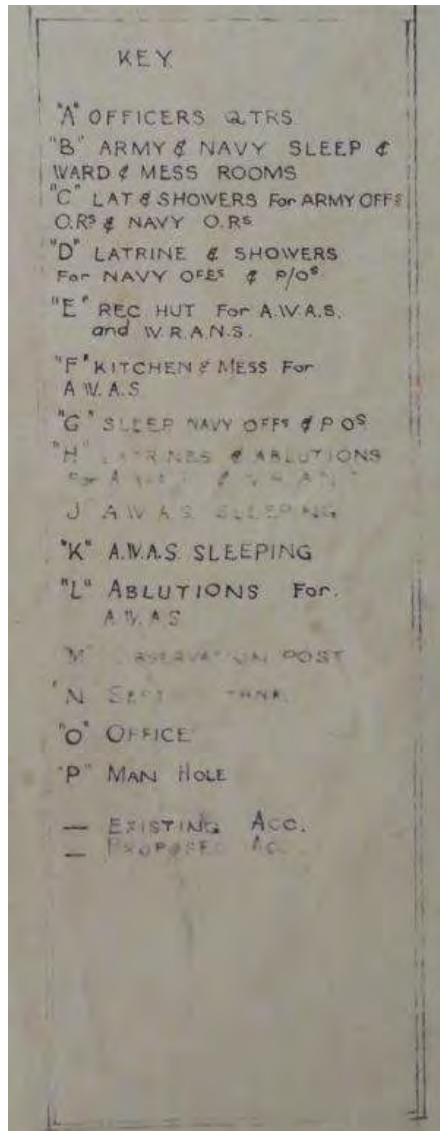 KEY
"A" OFFICERS QTRS
"B" ARMY & NAVY SLEEP &
WARD & MESS ROOMS
"C" LAT & SHOWERS For ARMY OFFS
O.RS & NAVY O.RS
"D" LATRINE & SHOWERS
For NAVY OFFS & P/OS
"E" REC HUT For A.W.A.S.
and W.R.A.N.S.
"F" KITCHEN & MESS For
A.W.A.S
"G" SLEEP NAVY OFFS & P OS
"H" LATRINES & ABLUTIONS
For
J A.W.A.S. SLEEPING
"K" A.W.A.S. SLEEPING
"L" ABLUTIONS For.
A.W.A.S
"M" OBSERVATION POST
"N SEPTIC TANK
"O" OFFICE
"P" MAN HOLE
— EXISTING ACC.
— PROPOSED AC